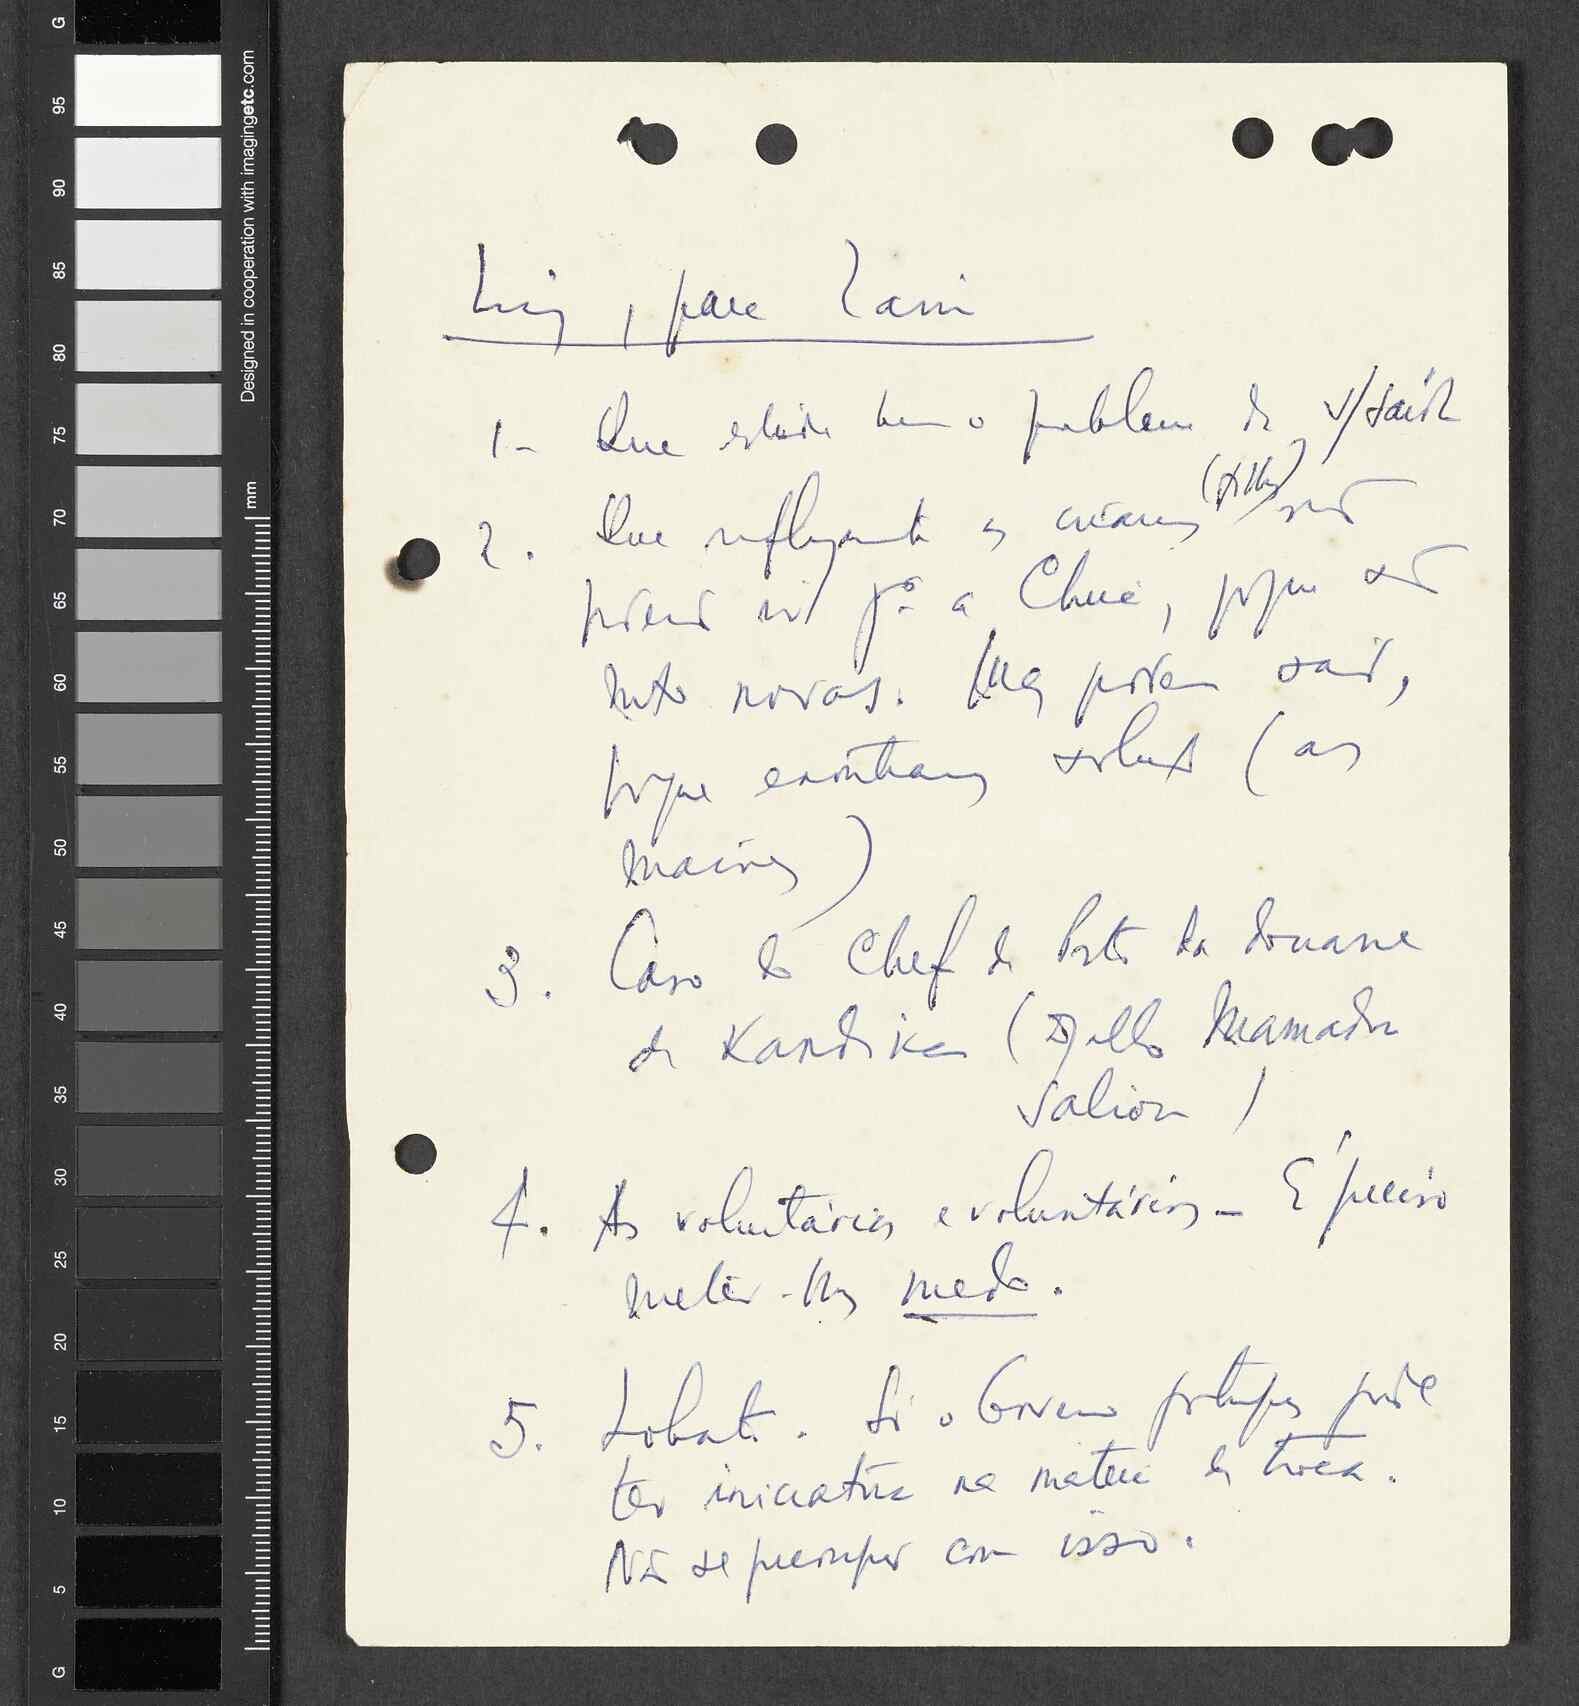 G
95
90
85
80
75
70
65
60
55
50
45
40
35
30
25
20
15
10
5
G
Designed in cooperation with imagingetc.com
mm
, para
1- Que estude bem o problema da v/saída
2. Que as crianças não
podem ir pª a China, porque são
muto novas. Mas podem sair,
porque encontramos (as
maiores)
3. Caso do Chef de Posto da douane
de Kandika (Djallo Mamadu
Saliou)
4. As voluntárias e voluntários - É preciso
meter-lhes medo.
5. Lobato. Só o Governo português pode
ter iniciativa na matéria da troca.
Não se preocupar com isso.